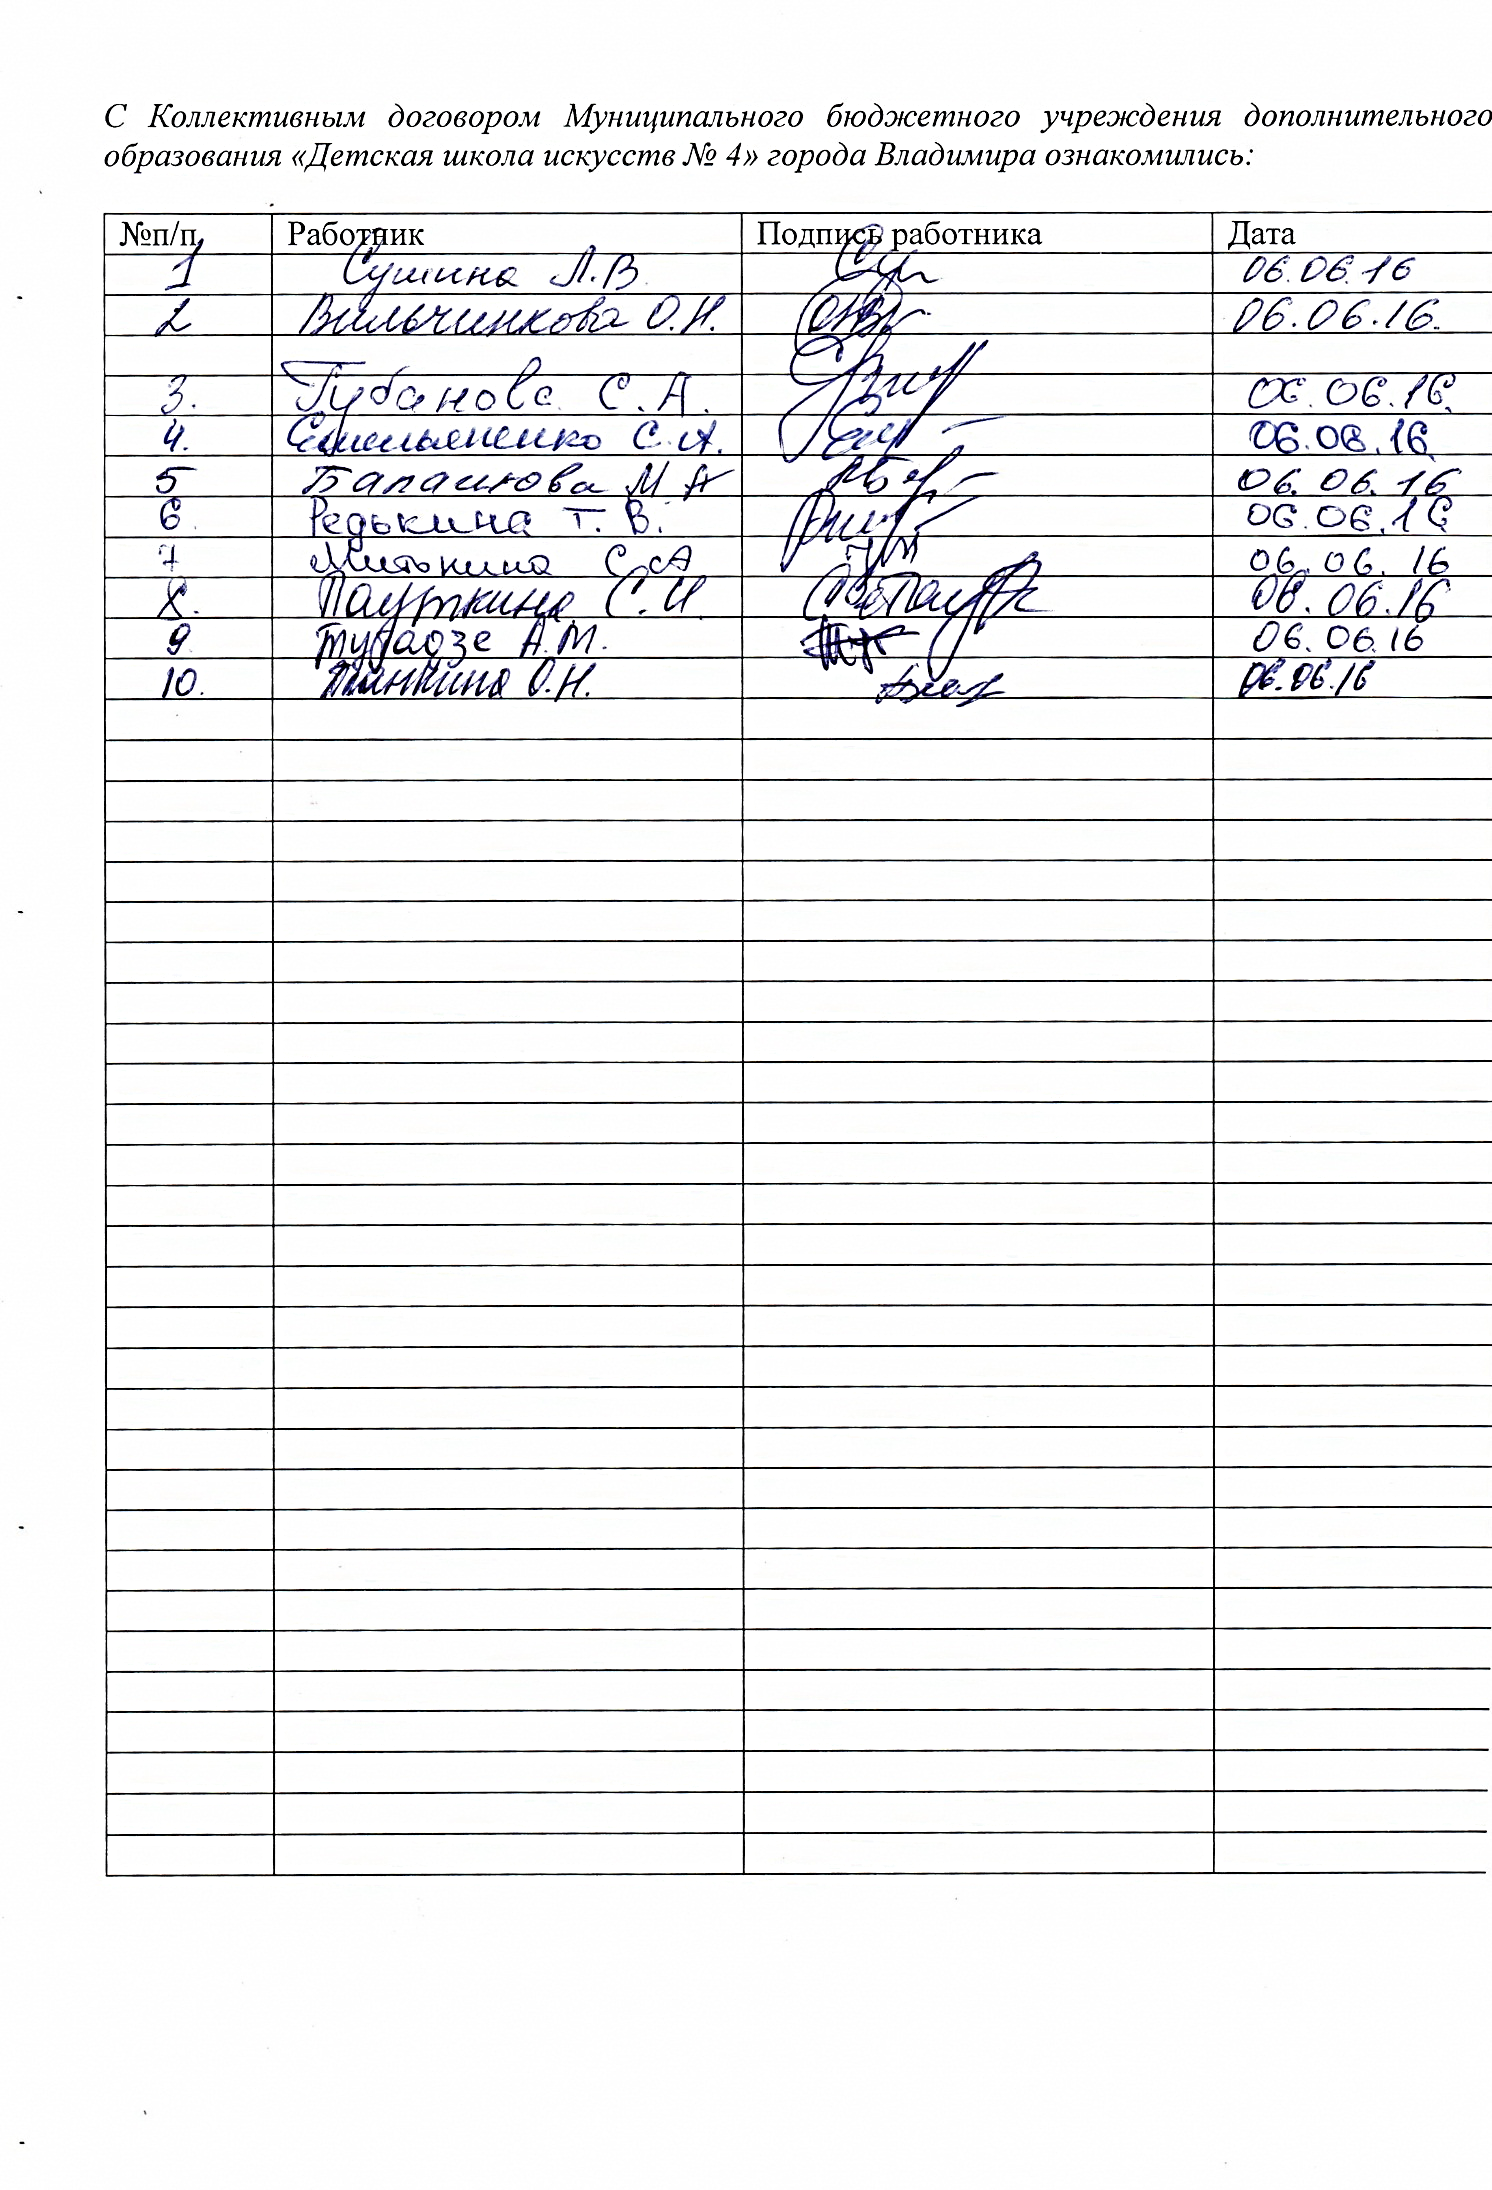 С Коллективным договором Муниципального бюджетного учреждения дополнительного
образования «Детская школа искусств № 4» города Владимира ознакомились:
№п/п Работник Подпись работника Дата
1 Сушина Л.В 06.06.16
2 Вильчинкова О.Н. 06.06.16.
3. Губанова С.А. 06.06.16.
4. Емельяненко С.А. 06.06.16.
5 Балашова М А 06.06.16
6 Редькина Т.В. 06.06.16
7 Митькина С.А 06.06.16
8. Пауткина С.И. 06.06.16
9 А.М. 06.06.16
10. О.Н. 06.06.16